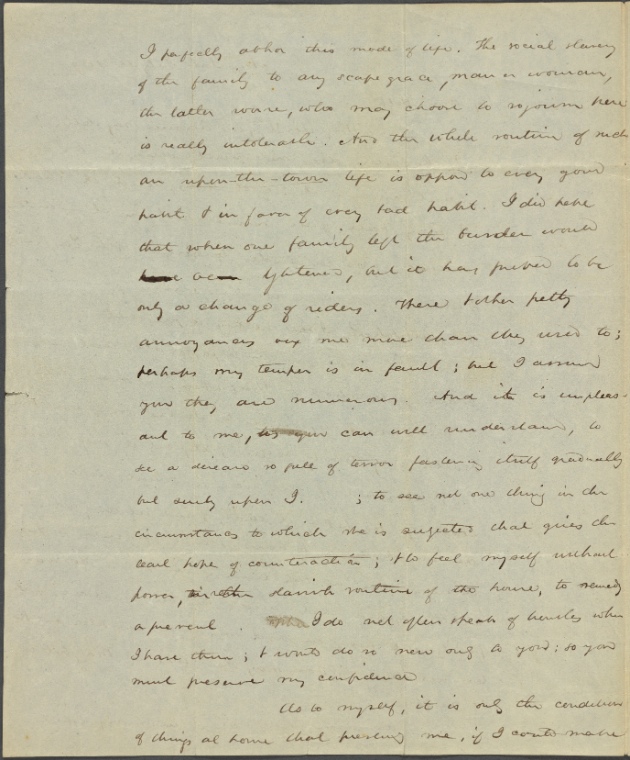 I perfectly abhor this mode of life. The social slavery
of the family to any scape grace, man or woman,
the latter worse, who may choose to sojourn here
is really intolerable. And the whole routine of such
an upon-the-town life is opposed to every good
habit & in favor of every bad habit. I did hope
that when one family left the burden would
lightened, but it has proved to be
only a change of riders. These & other petty
annoyances vex me more than they used to;
perhaps my temper is in fault; but I assure
you they are numerous. And it is unpleas-
ant to me, as you can well understand, to
see a disease so full of terror fastening itself gradually
but surely upon I. ; to see not one thing in the
circumstances to which she is subjected that gives the
least hope of counteraction; & to feel myself without
power, in the slavish routine of the house, to remedy
or prevent. I do not often speak of troubles when
I have them; & would do so now only to you: so you
must preserve my confidence
As to myself, it is only the condition
of things at home that prevents me, if I could make